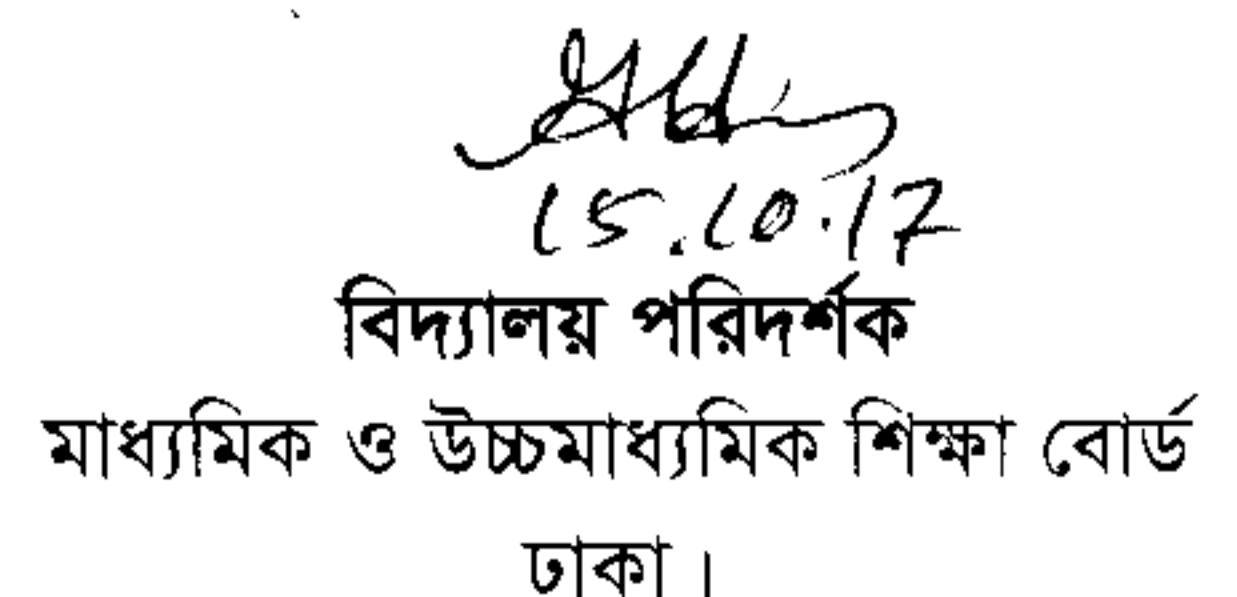 15.10.17
বিদ্যালয় পরিদর্শক
মাধ্যমিক ও উচ্চমাধ্যমিক শিক্ষা বোর্ড
ঢাকা।